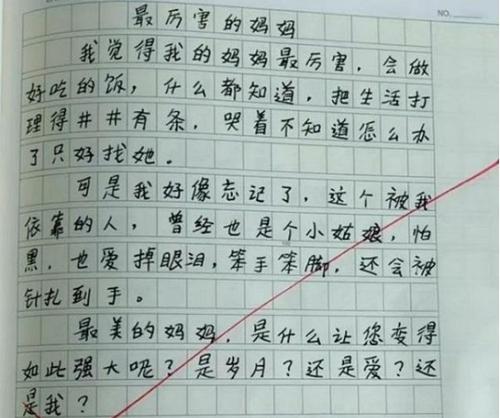 NO.
最厉害的妈妈
我觉得我的妈妈最厉害，会做
好吃的饭，什么都知道，把生活打
理得井井有条，哭着不知道怎么办
了只好找她。
可是我好像忘记了，这个被我
依靠的人，曾经也是个小姑娘，怕
黑，也爱掉眼泪，笨手笨脚，还会被
针扎到手。
最美的妈妈，是什么让您变得
如此强大呢？是岁月？还是爱？还
是我？